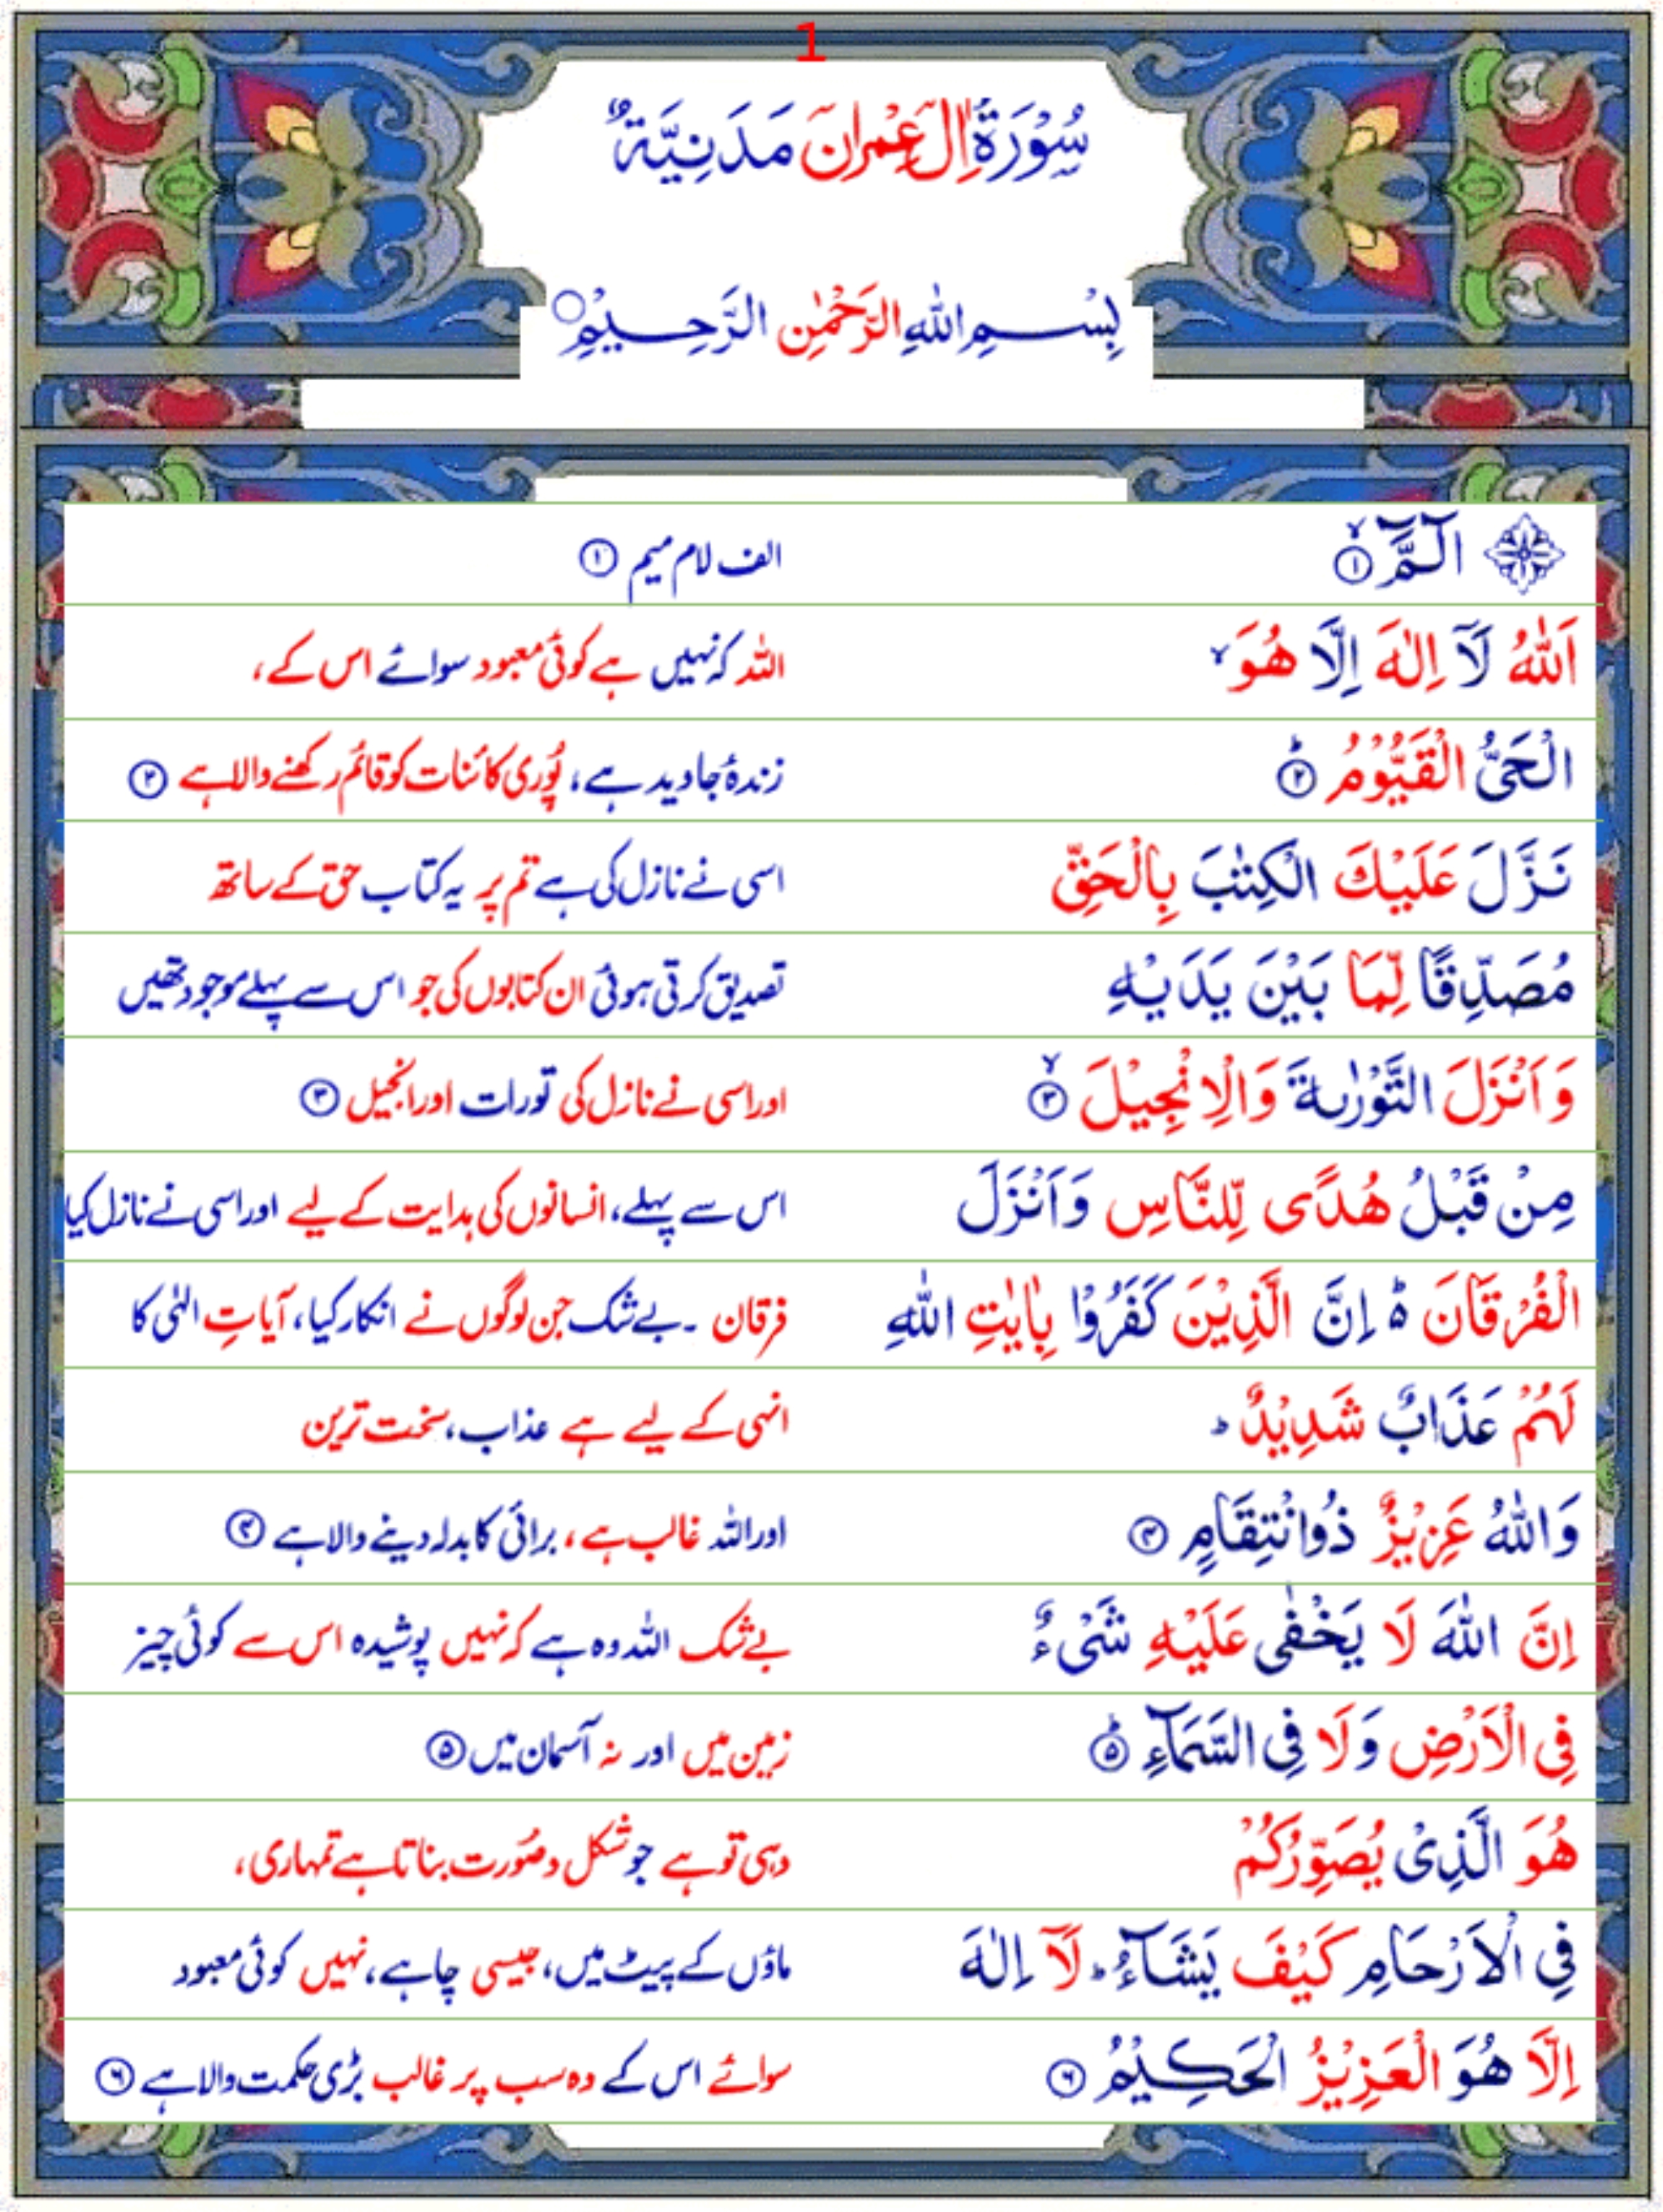 1
سُوْرَةُ اٰلِ عِمْرٰنَ مَدَنِيَّةٌ
بِسْمِ اللّٰهِ الرَّحْمٰنِ الرَّحِيْمِ
الٓمَّٓ ۙ﴿۱﴾ الف لام میم ﴿۱﴾
اَللّٰهُ لَاۤ اِلٰهَ اِلَّا هُوَ ۙ اللہ کہ نہیں ہے کوئی معبود سوائے اس کے،
الْحَیُّ الْقَيُّوْمُ ؕ﴿۲﴾ زندۂ جاوید ہے، پُوری کائنات کو قائم رکھنے والا ہے ﴿۲﴾
نَزَّلَ عَلَيْكَ الْكِتٰبَ بِالْحَقِّ اسی نے نازل کی ہے تم پر یہ کتاب حق کے ساتھ
مُصَدِّقًا لِّمَا بَيْنَ يَدَيْهِ تصدیق کرتی ہوئی ان کتابوں کی جو اس سے پہلے موجود تھیں
وَاَنْزَلَ التَّوْرٰىةَ وَالْاِنْجِيْلَ ۙ﴿۳﴾ اور اسی نے نازل کی تورات اور انجیل ﴿۳﴾
مِنْ قَبْلُ هُدًى لِّلنَّاسِ وَاَنْزَلَ اس سے پہلے، انسانوں کی ہدایت کے لیے اور اسی نے نازل کیا
الْفُرْقَانَ ؕ اِنَّ الَّذِيْنَ كَفَرُوْا بِاٰيٰتِ اللّٰهِ فرقان ۔ بے شک جن لوگوں نے انکار کیا، آیاتِ الہٰی کا
لَهُمْ عَذَابٌ شَدِيْدٌ ؕ انہی کے لیے ہے عذاب، سخت ترین
وَاللّٰهُ عَزِيْزٌ ذُوانْتِقَامٍ ﴿۴﴾ اور اللہ غالب ہے، برائی کا بدلہ دینے والا ہے ﴿۴﴾
اِنَّ اللّٰهَ لَا يَخْفٰى عَلَيْهِ شَىْءٌ بے شک اللہ وہ ہے کہ نہیں پوشیدہ اس سے کوئی چیز
فِى الْاَرْضِ وَلَا فِى السَّمَآءِ ؕ﴿۵﴾ زمین میں اور نہ آسمان میں ﴿۵﴾
هُوَ الَّذِىْ يُصَوِّرُكُمْ وہی تو ہے جو شکل وصُورت بناتا ہے تمہاری،
فِى الْاَرْحَامِ كَيْفَ يَشَآءُ ؕ لَاۤ اِلٰهَ ماؤں کے پیٹ میں، جیسی چاہے، نہیں کوئی معبود
اِلَّا هُوَ الْعَزِيْزُ الْحَكِيْمُ ﴿۶﴾ سوائے اس کے وہ سب پر غالب بڑی حکمت والا ہے ﴿۶﴾